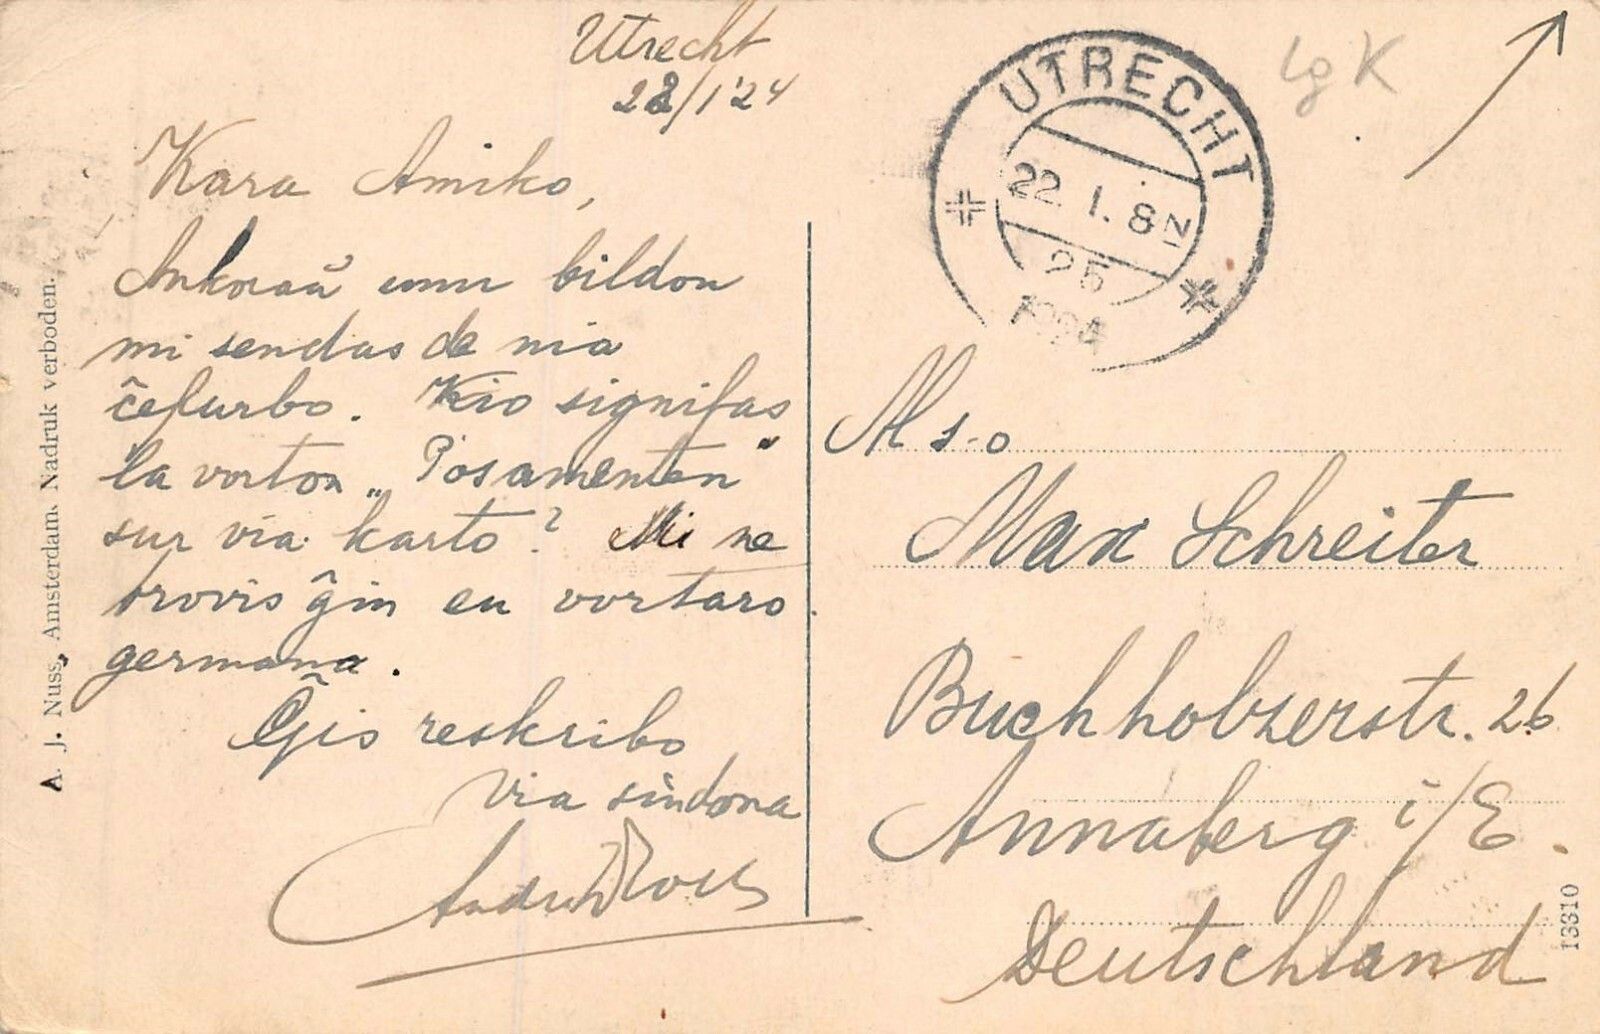 Utrecht
22/1'24
Kara Amiko,
Ankoraŭ unu bildon
mi sendas de mia
ĉefurbo. Kio signifas
la vorton „Posamenten”
sur via karto? Mi ne
trovis ĝin en vortaro
germana.
Ĝis reskribo
via sindona
A. J. Nuss, Amsterdam. Nadruk verboden.
UTRECHT
22.1.8 N
25
1924
Lg K
Al s-o
Max Schreiter
Buchholzerstr. 26
Annaberg i/E.
Deutschland
13310